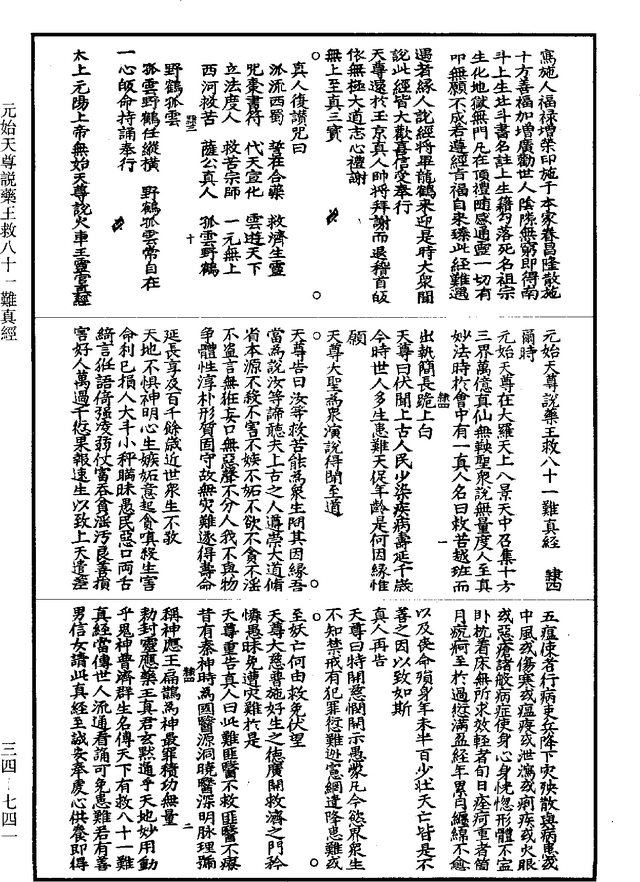 元始天尊說藥王救八十一難真經
三四—七四一
寫施人福祿增榮印施于本家眷昌隆散施
十方善福加增廣勸世人陰隲無窮即得南
斗上生北斗書名註上生籍勾落死名祖宗
生化地獄無門凡在頂禮隨感通靈一切有
叩無願不成若遵經音福自來臻此經難遇
遇者緣人說經將畢龍鶴來迎是時大眾聞
說此經皆大歡喜信受奉行
天尊還於玉京真人帥將拜謝而退稽首皈
依無極大道志心禮謝
無上至真三寶
真人復讚咒曰
派流西蜀 誓在合藥 救濟生靈
咒棗書符 代天宣化 雲遊天下
立法度人 救苦宗師 一元無上
西河救苦 薩公真人 孤雲野鶴
野鶴孤雲
孤雲野鶴任縱橫 野鶴孤雲常自在
一心皈命持誦奉行
太上元陽上帝無始天尊說火車王靈官真經
元始天尊說藥王救八十一難真經 隸四
爾時
元始天尊在大羅天上八景天中召集十方
三界萬億真仙無鞅聖眾說無量度人至真
妙法時於會中有一真人名曰救苦越班而
出執簡長跪上白
天尊曰伏聞上古人民少染疾病壽延千歲
今時世人多生患難夭促年齡是何因緣惟
願
天尊大聖為眾演說得聞至道
天尊告曰汝等救苦能為眾生問其因緣吾
當為說汝等諦聽夫上古之人遵崇大道脩
省本源不殺不害不嫉不妬不欲不貪不淫
不盜言無誑妄口無惡聲不分人我不與物
爭體性淳朴形質固守故無災難遂得壽命
延長享及百千餘歲近世眾生不敬
天地不懼神明心生嫉妬意起貪嗔殺生害
命利已損人大斗小秤瞞昧愚民惡口兩舌
綺言誑語倚強凌弱仗富吞貪淫污良善損
害好人萬過千愆果報遠生以致上天遣差
五瘟使者行病吏兵降下灾殃散與病患或
中風或傷寒或瘟疫或泄瀉或痢疾或火眼
或惡瘡諸般病症使身心身恍惚形體不寧
卧枕着床無所求效輕者旬日痊疴重者箇
月疣疴至於過愆滿盈經年累月纏綿不愈
以及喪命殞身年未半百少壯夭亡皆是不
善之因以致如斯
真人再告
天尊曰特開慈憫開示愚蒙凡今慾界眾生
不知禁戒有犯罪愆難逃憲網遭降患難或
至妖亡何由救免伏望
天尊大慈普施好生之德廣開救濟之門矜
憐愚昧免遭灾難於是
天尊重告真人曰此難匪醫不救匪醫不療
昔有秦神時為國醫源洞曉醫深明脉理號
稱神應王扁鵲為神最罪積功無量
勅封靈應藥王真君玄默通乎天地妙用動
乎鬼神普濟群生名傳天下有救八十一難
真經當傳世人流通看誦可免患難若有善
男信女請此真經至誠安奉虔心供養即得